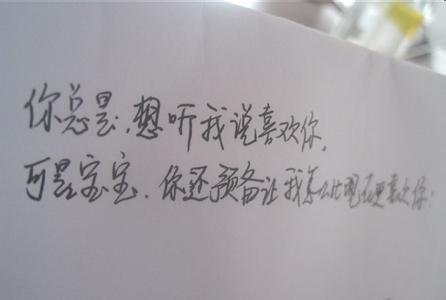 你总是,想听我说喜欢你。
可是宝宝,你还预备让我怎么比现在更喜欢你?